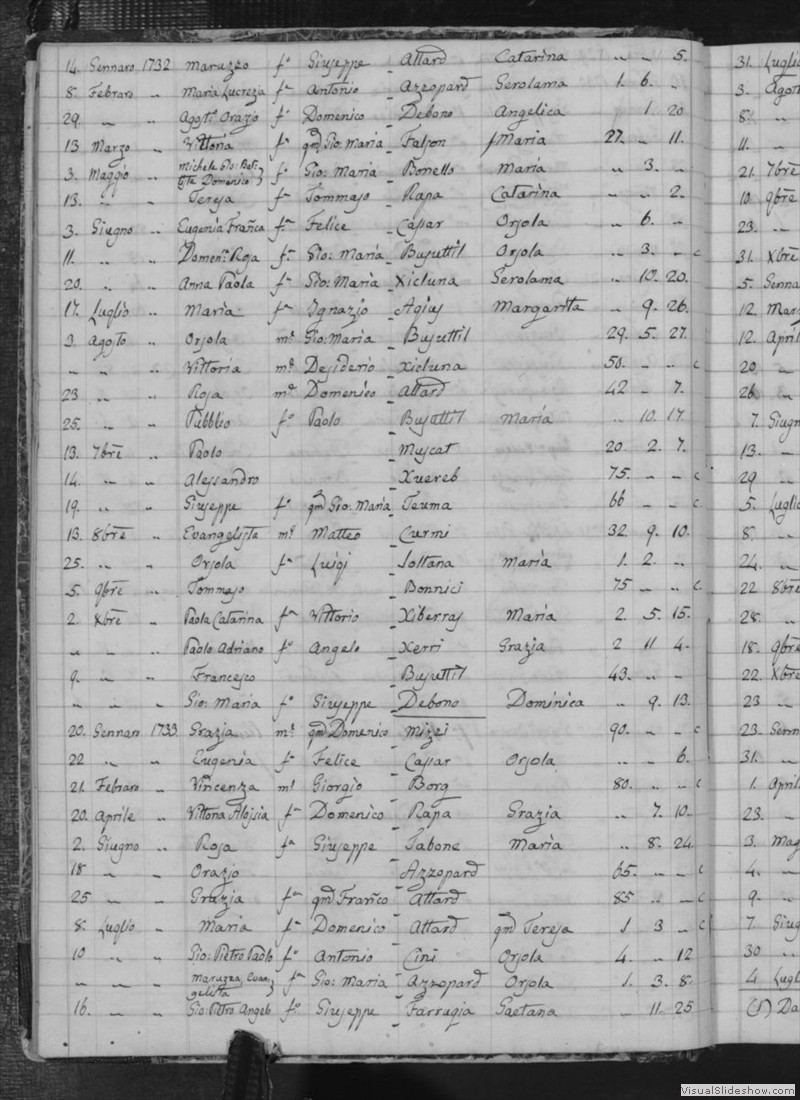 14. Gennaro 1732 Maruzzo fo Giuseppe Attard Catarina .. .. 5.
8. Febraro .. Maria Lucrezia fa Antonio Azzopard Gerolama 1. 6. ..
29. .. .. Agosto Orazio fo Domenico Debono Angelica 1. 20
13 Marzo .. Vittoria fa qm Gio: Maria Falson Maria 27. .. 11.
3. Maggio .. Michele Gio: Batista Domenico fo Gio: Maria Bonello Maria .. 3. ..
13. .. .. Teresa fa Tommaso Rapa Catarina .. .. 2.
3. Giugno .. Eugenia Franca fa Felice Cassar Orsola .. 6. ..
11. .. .. Domenca Rosa fa Gio: Maria Busuttil Orsola .. 3. .. c
20. .. .. Anna Paola fa Gio: Maria Xicluna Gerolama .. 10. 20.
17. Luglio .. Maria fa Ignazio Agius Margarita .. 9. 26.
3. Agosto .. Orsola me Gio: Maria Busuttil 29. 5. 27.
.. .. .. Vittoria me Desiderio Xicluna 50. .. .. c
23 .. .. Rosa me Domenico Attard 42 .. 7.
25. .. .. Pubblio fo Paolo Busuttil Maria .. 10. 17.
13. 7bre .. Paolo Muscat 20. 2. 7.
14. .. .. Alessandro Xuereb 75. .. .. c
19. .. .. Giuseppe fo qm Gio: Maria Teuma 66 .. .. c
13. 8bre .. Evangelista me Matteo Curmi 32. 9. 10.
25. .. .. Orsola fa Luigi Soltana Maria 1. 2. ..
5. 9bre .. Tommaso Bonnici 75 .. .. c
2. Xbre .. Paola Catarina fa Vittorio Xiberras Maria 2. 5. 15.
.. .. .. Paolo Adriano fo Angelo Xerri Grazia 2 11 4.
9. .. .. Francesco Busuttil 43. .. ..
.. .. .. Gio: Maria fo Giuseppe Debono Dominica .. 9. 13.
20. Gennaro 1733 Grazia me qm Domenico Mizzi 90. .. .. c
22 .. .. Eugenia fa Felice Cassar Orsola .. .. 6.
21. Febraro .. Vincenza me Giorgio Borg 80. .. .. c
20. Aprile .. Vittoria Aloisia fa Domenico Rapa Grazia .. 7. 10.
2. Giugno .. Rosa fa Giuseppe Tabone Maria .. 8. 24
18 .. .. Orazio Azzopard 65. .. .. c
25 .. .. Grazia fa qm Franco Attard 85 .. .. c
8. Luglio .. Maria fa Domenico Attard qm Teresa 1 3 .. c
10 .. .. Gio: Pietro Paolo fo Antonio Cini Orsola 4. .. 12
.. .. .. Maruzza Evangelista fa Gio: Maria Azzopard Orsola 1. 3. 8.
16. .. .. Gio: Pietro Angelo fo Giuseppe Farrugia Gaetana .. 11. 25
31. Luglio
3. Agosto
8. ..
11. ..
21. 7bre
10. 9bre
23. ..
31. Xbre
5. Genna
12. Mar
12. April
20 ..
26 ..
7. Giugn
13. ..
29 ..
5. Luglio
8. ..
24. ..
22 8bre
28. ..
18. 9bre
22. Xbre
23 ..
23. Genn
31. ..
1. April
23. ..
3. Mag
4. ..
9. ..
7. Giug
30 ..
4. Lugl
(1) Da
VisualSlideshow.com